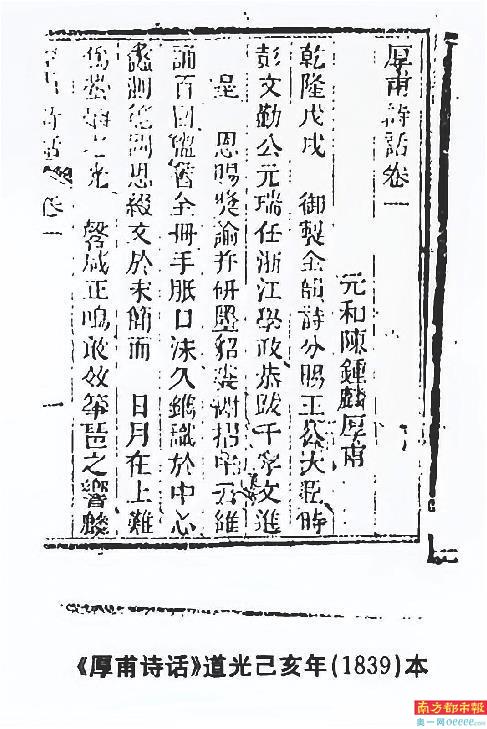 厚甫詩話卷一
元和陳鍾麟厚甫
乾隆戊戌 御製全韻詩分賜王公大臣時
彭文勤公元瑞任浙江學政恭跋千字文進
呈 恩賜獎諭并研墨貂裘謝摺中云維
誦百回溫舊全冊手胝口沫久鐫識於中心
蠡測思綴文於末簡而 日月在上難
為螢爝之光 咸正鳴敢效箏琶之響麟
詩話 卷一 一
《厚甫诗话》道光己亥年(1839)本
南方都市報
奥一网oeeee.com